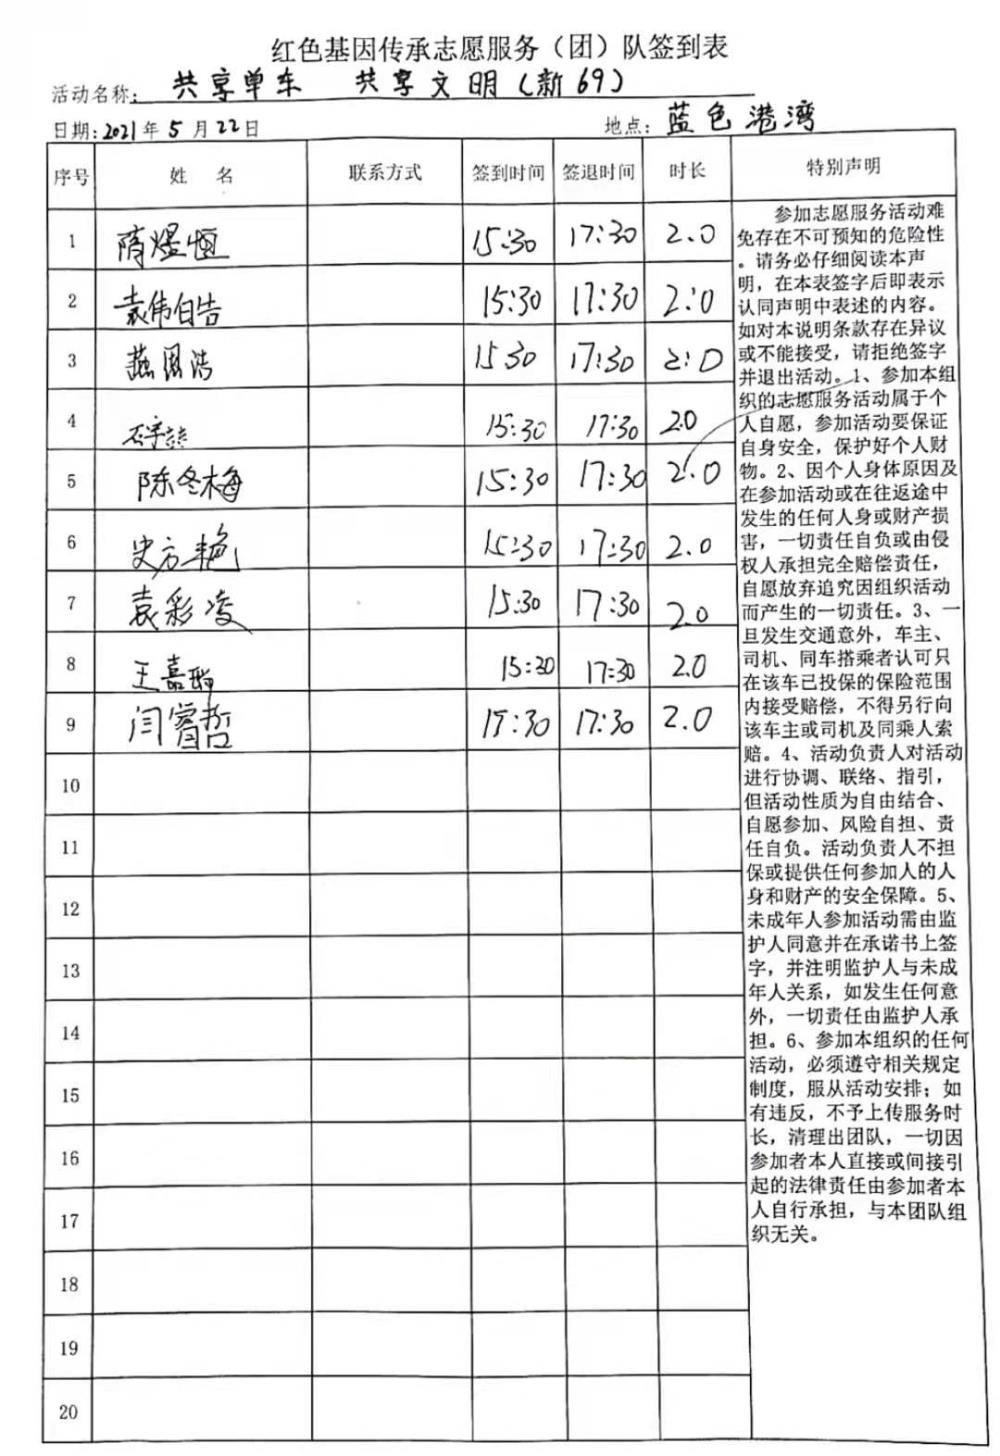 红色基因传承志愿服务（团）队签到表
活动名称：共享单车 共享文明（新69）
日期：2021年5月22日 地点：蓝色港湾
序号 姓名 联系方式 签到时间 签退时间 时长 特别声明
1 隋煜恒 15:30 17:30 2.0
2 袁伟伯告 15:30 17:30 2:0
3 燕国浩 15 30 17:30 2:0
4 15:30 17:30 20
5 陈冬梅 15:30 17:30 2.0
6 史方艳 15:30 17:30 2.0
7 袁彩凌 15:30 17:30 2.0
8 王嘉 15:30 17:30 2.0
9 闫睿哲 15:30 17:30 2.0
10
11
12
13
14
15
16
17
18
19
20
参加志愿服务活动难
免存在不可预知的危险性
。请务必仔细阅读本声
明，在本表签字后即表示
认同声明中表述的内容。
如对本说明条款存在异议
或不能接受，请拒绝签字
并退出活动。1、参加本组
织的志愿服务活动属于个
人自愿，参加活动要保证
自身安全，保护好个人财
物。2、因个人身体原因及
在参加活动或在往返途中
发生的任何人身或财产损
害，一切责任自负或由侵
权人承担完全赔偿责任，
自愿放弃追究因组织活动
而产生的一切责任。3、一
旦发生交通意外，车主、
司机、同车搭乘者认可只
在该车已投保的保险范围
内接受赔偿，不得另行向
该车主或司机及同乘人索
赔。4、活动负责人对活动
进行协调、联络、指引，
但活动性质为自由结合、
自愿参加、风险自担、责
任自负。活动负责人不担
保或提供任何参加人的人
身和财产的安全保障。5、
未成年人参加活动需由监
护人同意并在承诺书上签
字，并注明监护人与未成
年人关系，如发生任何意
外，一切责任由监护人承
担。6、参加本组织的任何
活动，必须遵守相关规定
制度，服从活动安排；如
有违反，不予上传服务时
长，清理出团队，一切因
参加者本人直接或间接引
起的法律责任由参加者本
人自行承担，与本团队组
织无关。